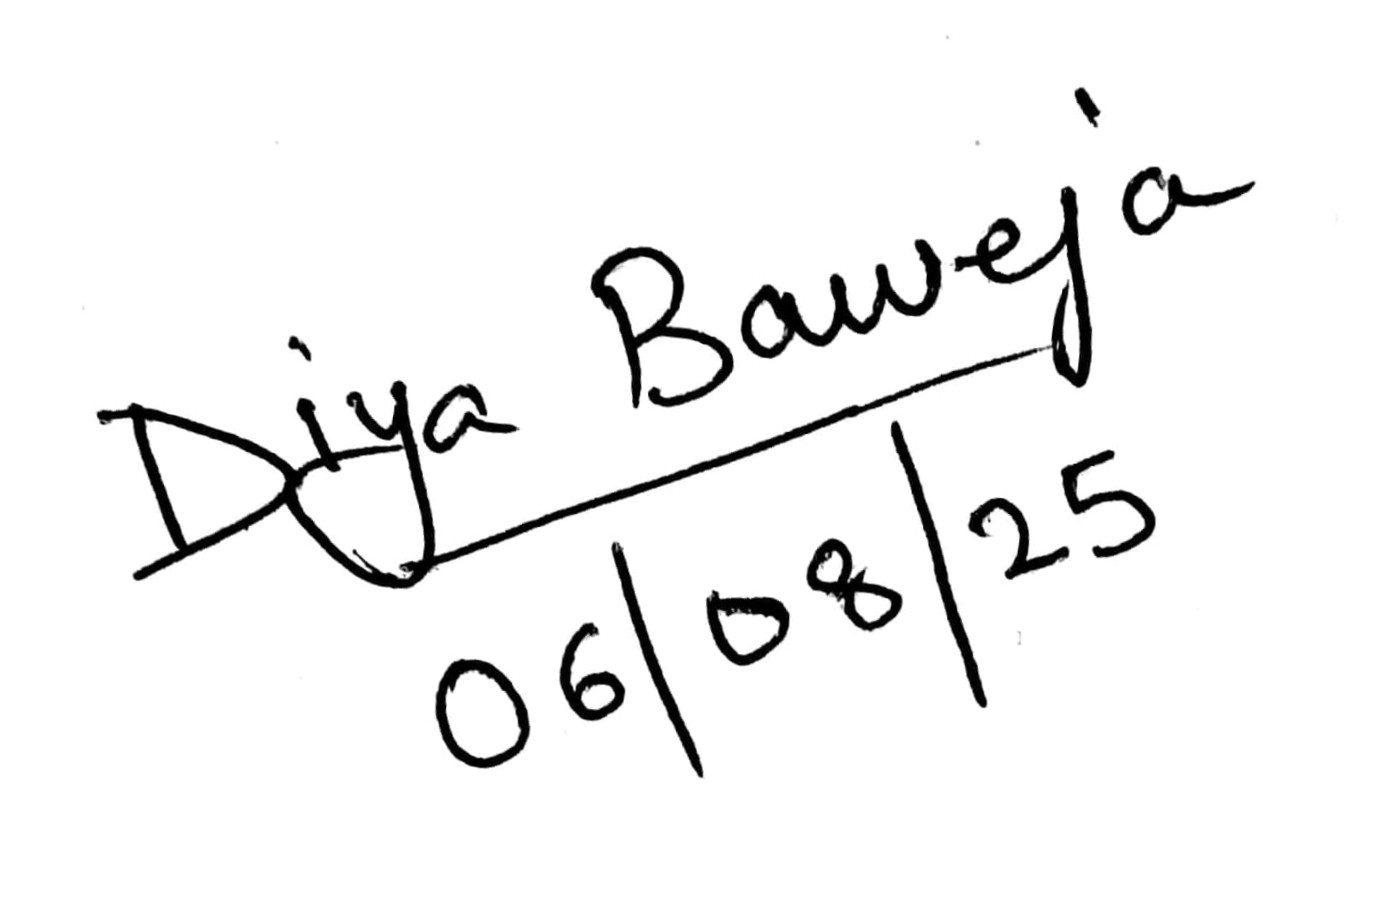 Diya Baweja
06/08/25